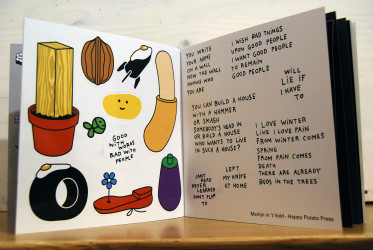 GOOD
WITH
WORDS
BAD WITH
PEOPLE
YOU WRITE
YOUR NAME
ON A WALL
NOW THE WALL
KNOWS WHO
YOU ARE
I WISH BAD THINGS
UPON GOOD PEOPLE
I WANT GOOD PEOPLE
TO REMAIN
GOOD PEOPLE
WILL
LIE IF
I HAVE
TO
YOU CAN BUILD A HOUSE
WITH A HAMMER
OR SMASH
SOMEBODY'S HEAD IN
OR BUILD A HOUSE
WHO WANTS TO LIVE
IN SUCH A HOUSE?
I LOVE WINTER
LIKE I LOVE PAIN
FROM WINTER COMES
SPRING
FROM PAIN COMES
DEATH
THERE ARE ALREADY
BUDS IN THE TREES
CAN'T
READ
NEVER
LEARNED
DON'T
TO
LEFT
MY KNIFE
AT HOME
Martijn in 't Veld - Happy Potato Press